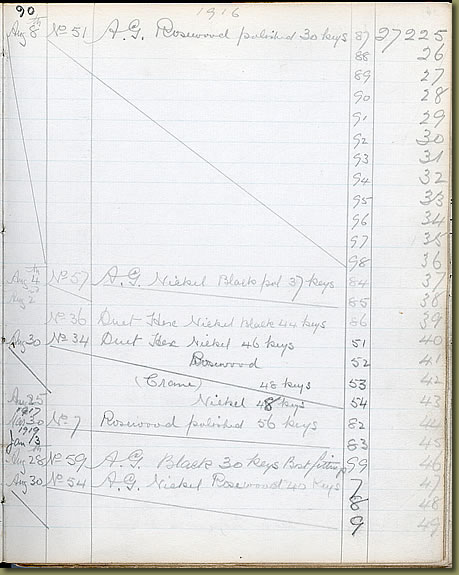 90 1916
Aug 8th No 51 A.G. Rosewood polished 30 keys 87 27225
88 26
89 27
90 28
91 29
92 30
93 31
94 32
95 33
96 34
97 35
98 36
Aug 4th No 57 A.G. Nickel Black pol 37 keys 84 37
Aug 2 85 38
No 36 Duet Hex Nickel Black 44 keys 86 39
Aug 30 No 34 Duet Hex Nickel 46 keys 51 40
Rosewood 52 41
(Crane) 48 keys 53 42
Nickel 48 keys 54 43
Aug 25
1917
30 No 7 Rosewood polished 56 keys 82 44
1919
Jan 13 83 45
Aug 28th No 59 A.G. Black 30 keys Best fittings 99 46
Aug 30 No 54 A.G. Nickel Rosewood 40 keys 7 47
8 48
9 49